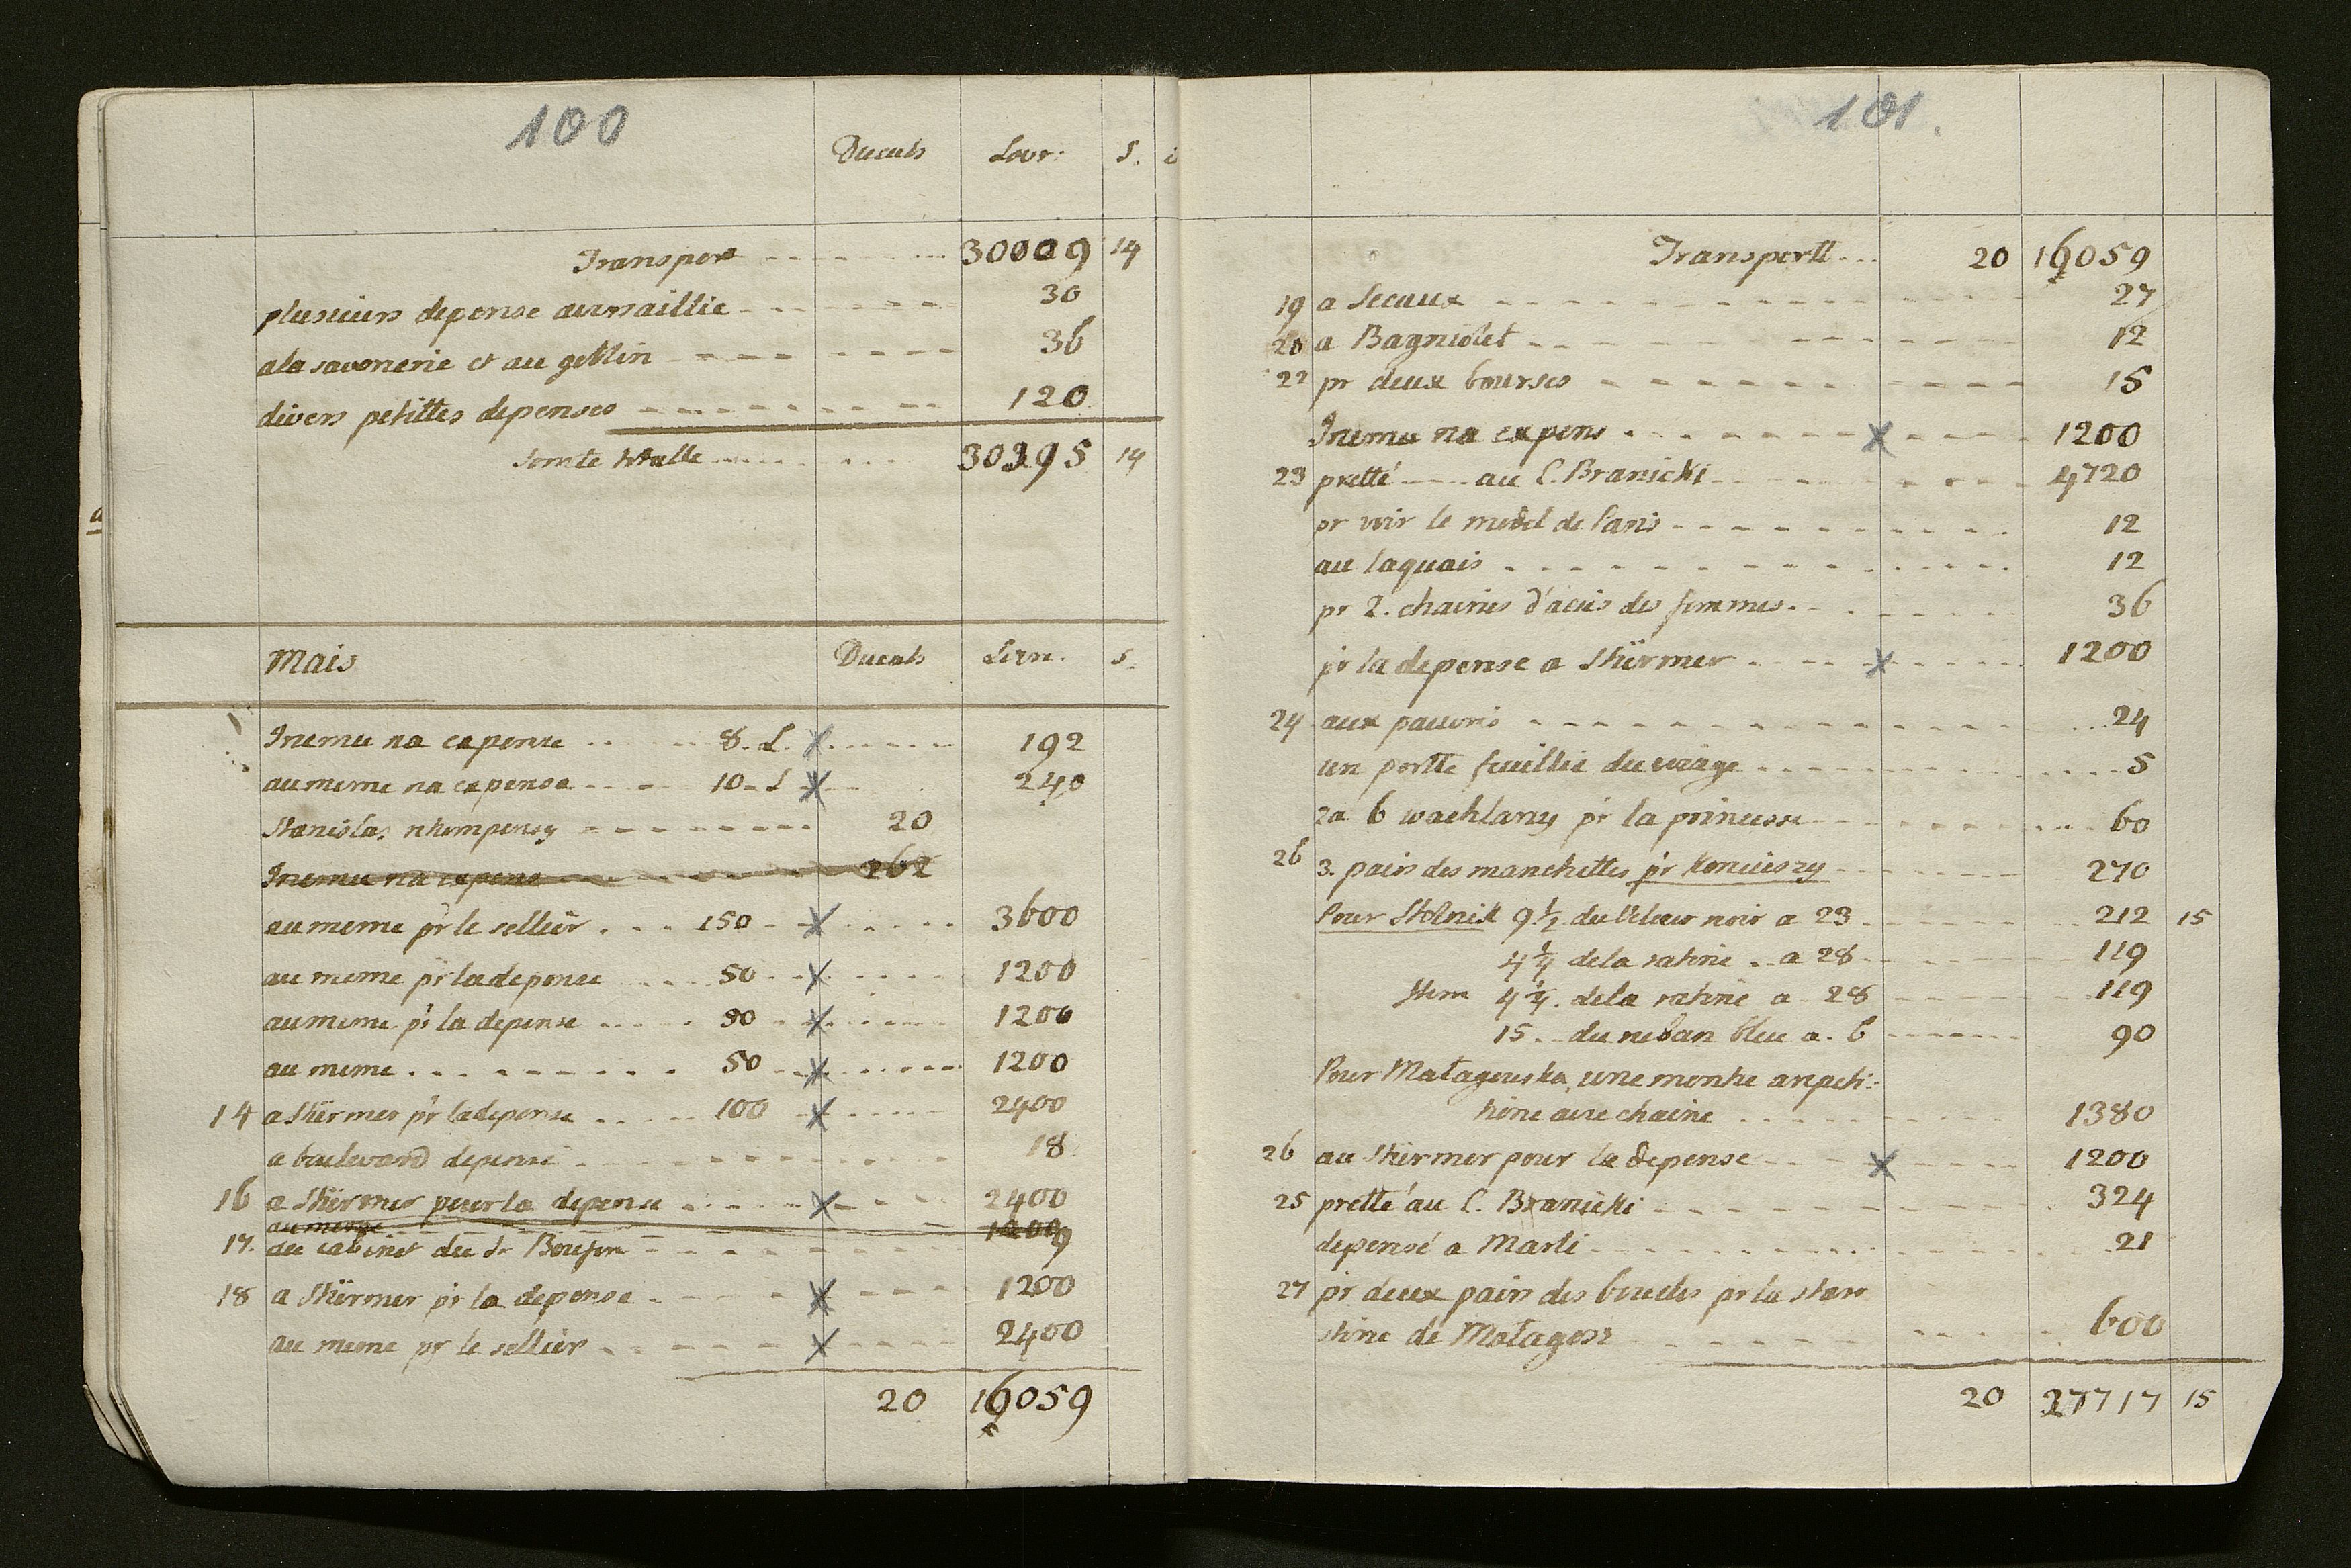 100
Ducats Livr: S.
Transport 30009 14
plusieurs depense aversaillie 30
ala savonerie et au goblin 36
divers petittes depenses 120
somte totalle 30395 14
Mais Ducats Livr. S.
Inemu na expense 8. L. X 192
au meme na expense 10. L X 240
Stanislas 20
Inemu na expens 262
au meme pr le sellier 150 X 3600
au meme pr la depense 50 X 1200
au meme pr la depense 50 X 1200
au meme 50 X 1200
14 a Stürmer pr la depense 100 X 2400
a boulevard depensé 18
16 a Stürmer pour la depense X 2400
au meme 1200
17. du cabinet du Sr Boufon 9
18 a Stürmer pr la depense X 1200
au meme pr le sellier X 2400
20 16059
101.
Transportt 20 16059
19 a Secaux 27
20 a Bagniolet 12
22 pr deux bourses 15
Inemu na expens X 1200
23 pretté au C. Branicki 4720
pr voir le model de Paris 12
au laquais 12
pr 2. chaines d'acies des femmes 36
pr la depense a Stürmer X 1200
24 aux pauvris 24
un portte feuillie du voiage 5
za 6 wachlarzy pr la princesse 60
26 3. pairs des manchettes pr Koniuszy 270
Pour Stolnik 9 1/2 du Velour noir a 23 212 15
4 1/4 dela ratine a 28 119
Item 4 1/4. dela ratine a 28 119
15 du ruban bleu a 6 90
Pour Małagouska, une montre arepeti:
tione avec chaine 1380
26 au Stürmer pour la depense X 1200
25 pretté au C. Branicki 324
depensé a Marli 21
27 pr deux pairs des boucles pr la staro
stine de Małagosz 600
20 27717 15